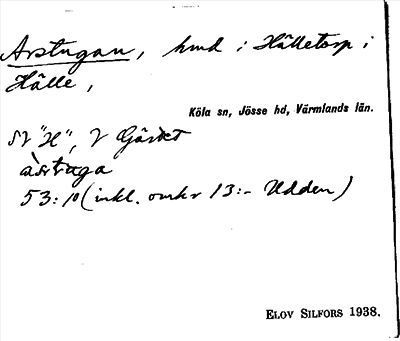 Arstugan, hmd i Hälletorp i
Hälle,
Köla sn, Jösse hd, Värmlands län.
SV "H", V Gärdet
àrstuga
53:10 (inkl. omkr 13:- Udden)
ELOV SILFORS 1938.